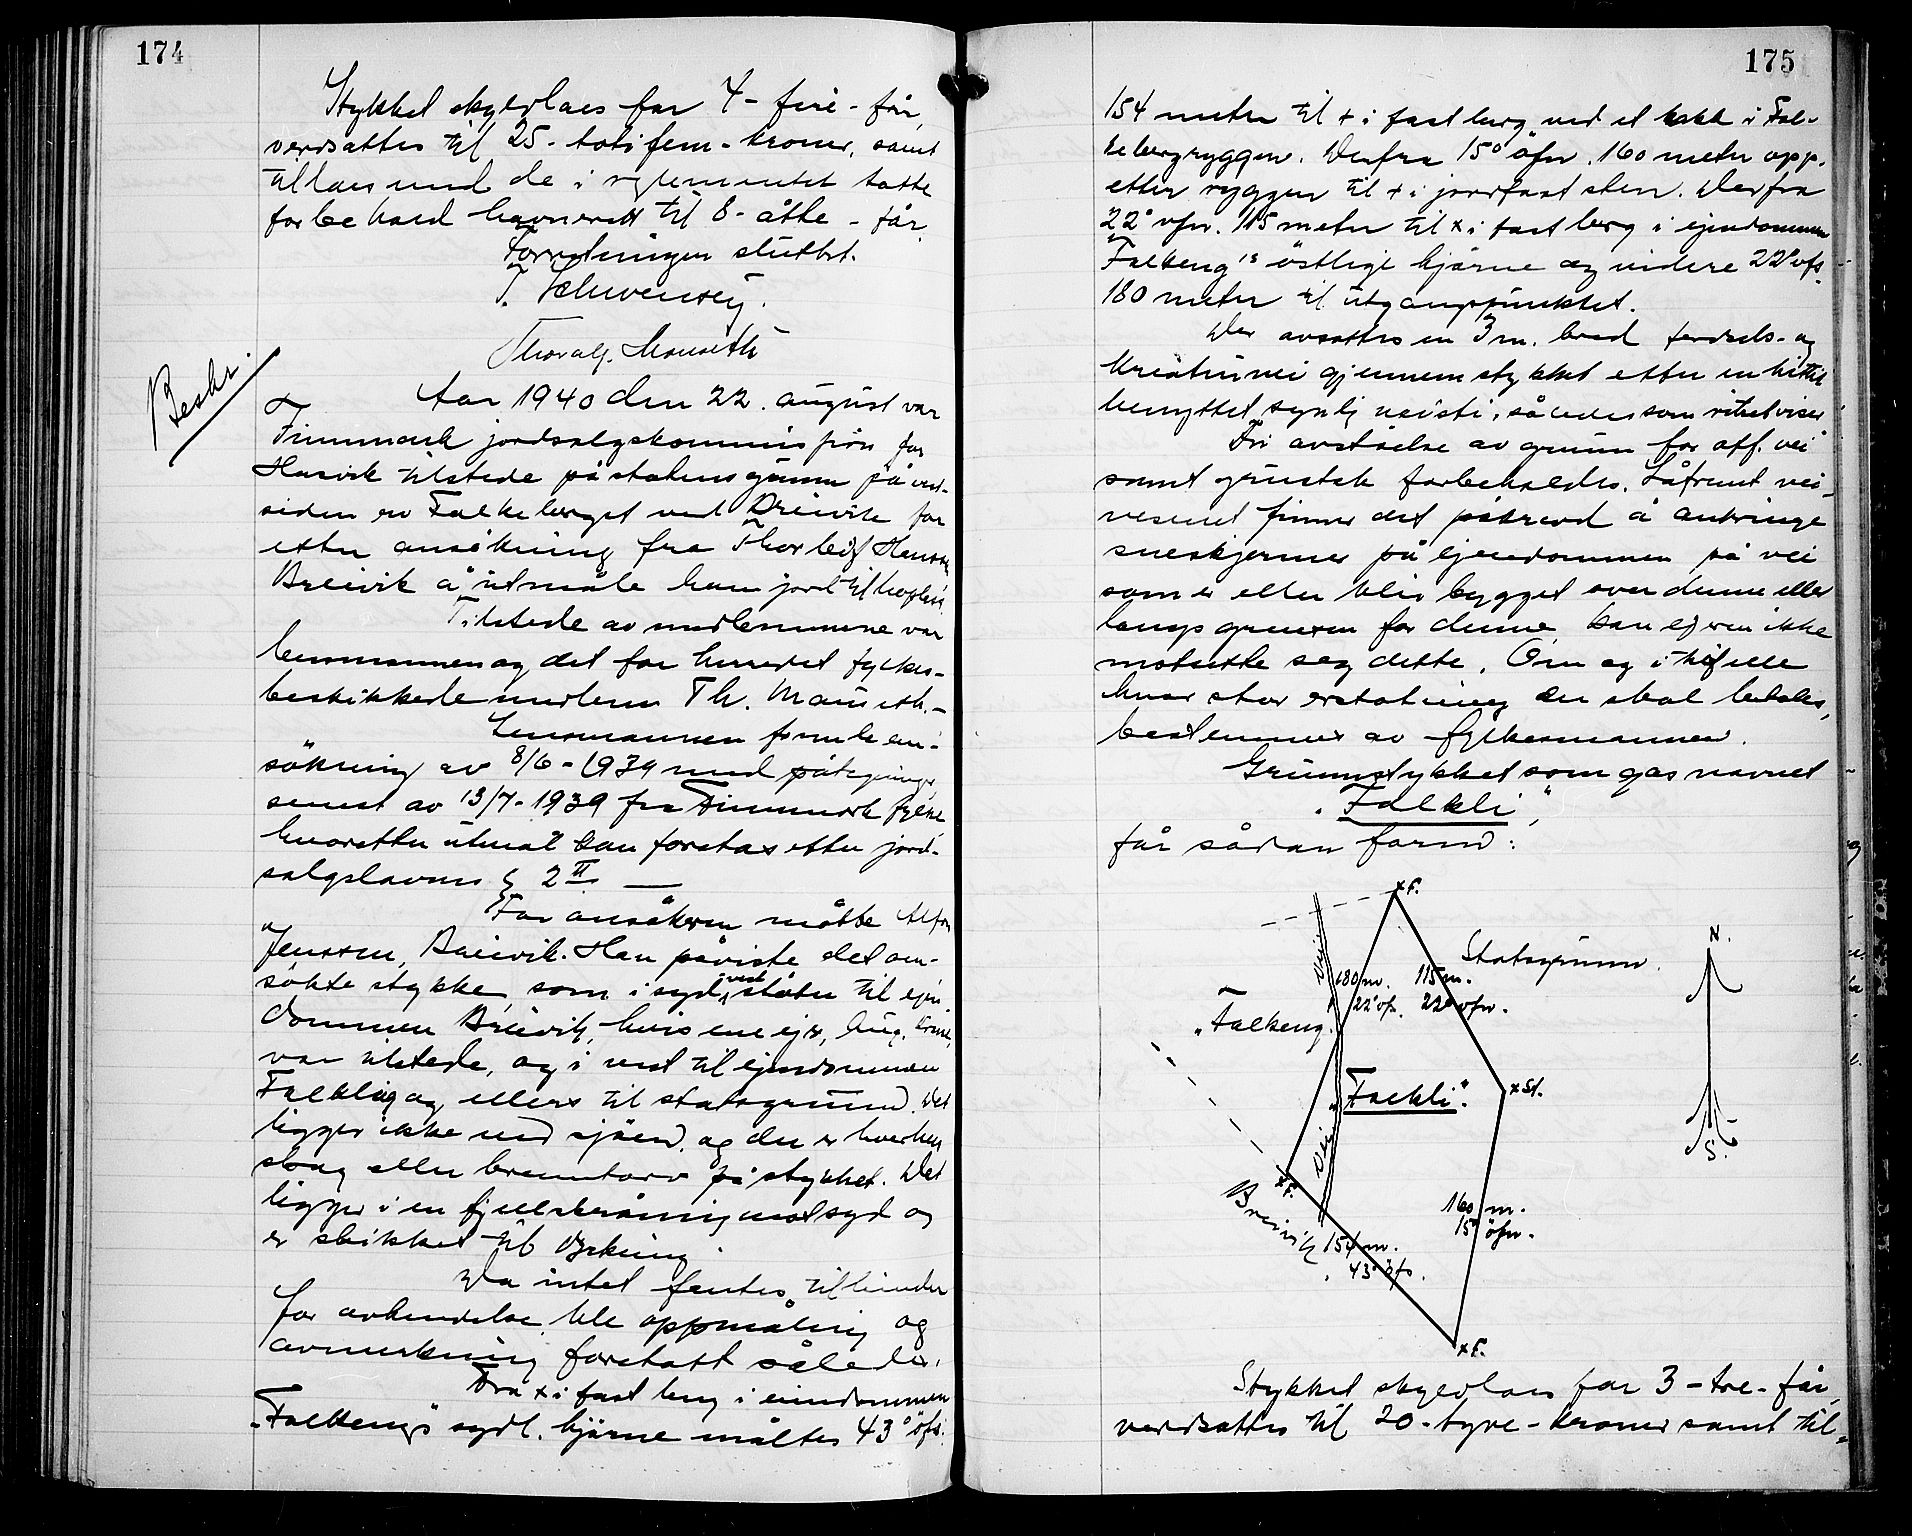 174
Stykket skyldlaes for 4 - fire - før,
verdsattes til 25 - totifem - kroner, samt
tillaes med de i reglementet tatte
forbehold havnerett til 8 - åtte - får.
Forretningen sluttet.
T. Schwensey.
Thoralf. Mauseth
Beskr.
Aar 1940 den 22. august var
Finnmark jordsalgskommisjon for
Hasvik tilstede på statens grunn på vest-
siden av Falkeberget ved Breivik for
etter ansökning fra Thorleif Hansen
Breivik å utmåle ham jord til
Tilstede av medlemmene var
lensmannen og det for herredet fylkes-
beskikkede medlem Th. Mauseth. -
Lensmannen fremla an-
sökning av 8/6 - 1939 med påtegninger,
senest av 13/7 - 1939 fra Finnmark fylke
hvoretter utmål kan foretas etter jord-
salgslovens § 2 II. —
For ansökeren måtte Alfon
Jenssen, Breivik. Han påviste det om-
sökte stykke, som i syd vest stöter til ejen
dommen Breivik, hvis ene ejer, Aug.
var tilstede, og i vest til ejendommen
Falkeng og ellers til statsgrunn. Det
ligger ikke ved sjöen, og der er hverken
skog eller brenntorv på stykket. Det
ligger i en fjellskråning mot syd og
er skikket til dyrkning.
Da intet fantes til hinder
for avhendelse, ble oppmåling og
avmerkning foretatt således:
Fra x i fast berg i eiendommen
"Falkeng"s sydl. hjörne måltes 43° öfs.
175
154 meter til x i fast berg ved et hakk i Fal-
kebergryggen. Derfra 15° öfn. 160 meter opp-
etter ryggen til x i jordfast sten. Derfra
22° vfn. 115 meter til x i fast berg i ejendommen
"Falkeng"s östlige hjörne og videre 22° vfs.
180 meter til utgangspunktet.
Der avsattes en 3 m. bred ferdsels- og
kreaturvei gjennem stykket etter en hittil
benyttet synlig veisti, således som risset viser.
Fri avståelse av grunn for off. vei
samt grustak forbeholdes. Såfremt vei-
vesenet finner det påkrevd å anbringe
sneskjermer på ejendommen på vei
som er eller blir bygget over denne eller
langs grensen for denne, kan ejeren ikke
motsette seg dette. Om og i tilfelle
hvor stor erstatning der skal betales,
bestemmes av fylkesmannen.
Grunnstykket som gas navnet
"Falkli",
får sådan form:
x F.
Statsgrunn.
N.
Vei
180 m.
22° vfs.
115 m.
22° vfn.
"Falkeng."
"Falkli".
x St.
Vei
S.
x F.
Breivik.
160 m.
15° öfn.
154 m.
43° öfs.
x F.
Stykket skyldlaes for 3 - tre - får,
verdsattes til 20 - tyve - kroner samt til-